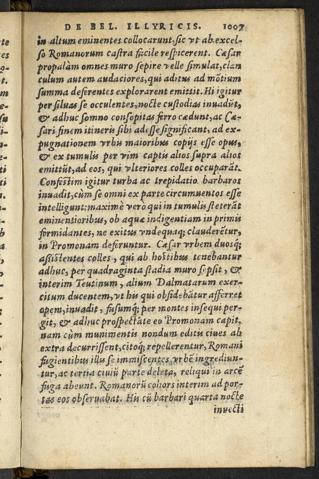 DE BEL. ILLYRICIS. 1007
in altum eminentes collocarunt, sic vt ab excel-
so Romanorum castra facile respicerent. Cæsar
propalàm omnes muro sepire velle simulat, clan
culum autem audaciores, qui aditus ad mōtium
summa deferentes explorarent emittit. Hi igitur
per siluas se occulentes, nocte custodias inuadūt,
& adhuc somno consopitas ferro cædunt, ac Cæ-
sari finem itineris sibi adesse significant, ad ex-
pugnationem vrbis maioribus copijs esse opus,
& ex tumulis per vim captis alios supra alios
emittūt, ad eos, qui vlteriores colles occuparāt.
Confestim igitur turba ac trepidatio barbaros
inuadit, cùm se omni ex parte circumuentos esse
intelligunt: maximè verò qui in tumulis steterāt
eminentioribus, ob aquæ indigentiam in primis
formidantes, ne exitus vndequaq; clauderētur,
in Promonam deferuntur. Cæsar vrbem duosq;
assistentes colles, qui ab hostibus tenebantur
adhuc, per quadraginta stadia muro sepsit, &
interim Teutinum, alium Dalmatarum exer-
citum ducentem, vt his qui obsidebātur afferret
opem, inuadit, fusumq; per montes insequi per-
git, & adhuc prospectāte eo Promonam capit,
nam cùm munimentis nondum editis ciues ab
extra decurrissent, citòq; repellerentur, Romani
fugientibus illis se immiscentes vrbē ingrediun-
tur, ac tertia ciuiū parte deleta, reliqui in arcē
fuga abeunt. Romanorū cohors interim ad por-
tas eos obseruabat. Hi cū barbari quarta nocte
inuecti